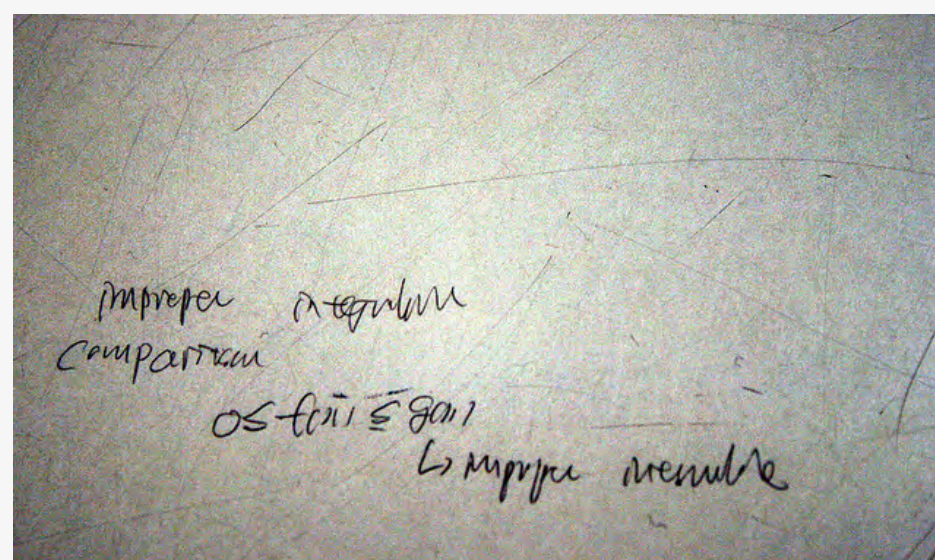 improper integrable
comparison
0≤f(x)≤g(x)
↳ improper integrable